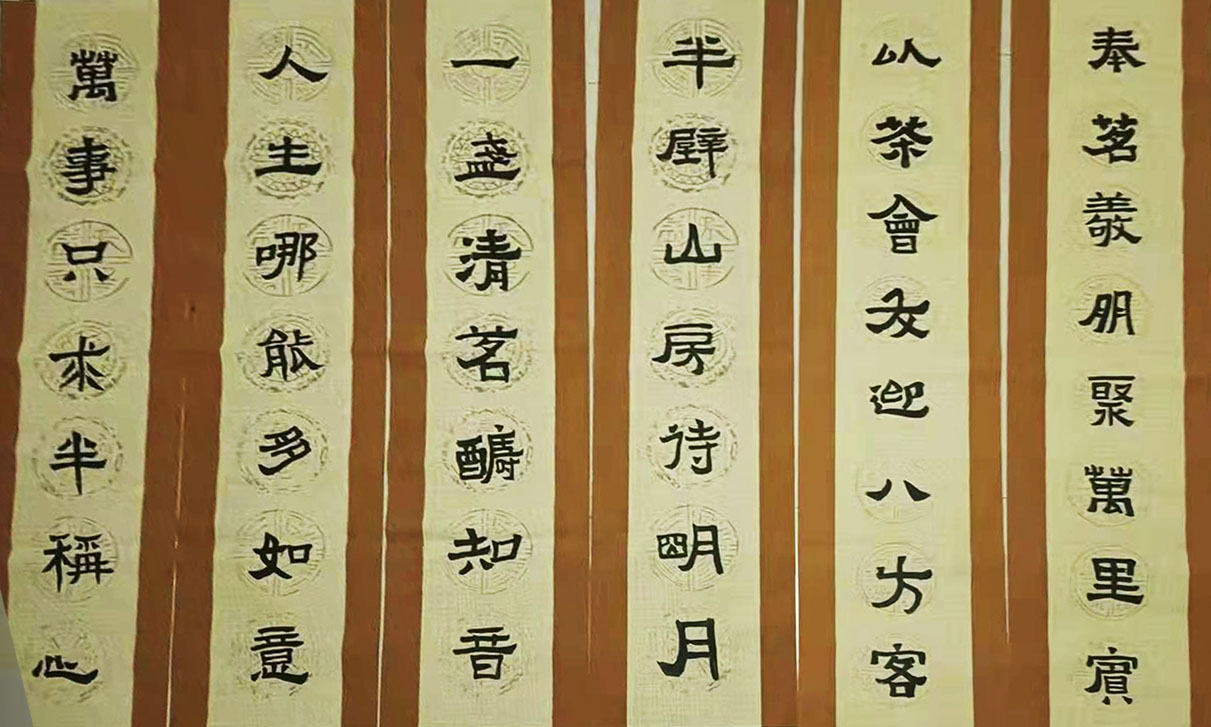 奉茗敬朋聚萬里賓
以茶會友迎八方客
半壁山房待明月
一盞清茗醻知音
人生哪能多如意
萬事只求半稱心